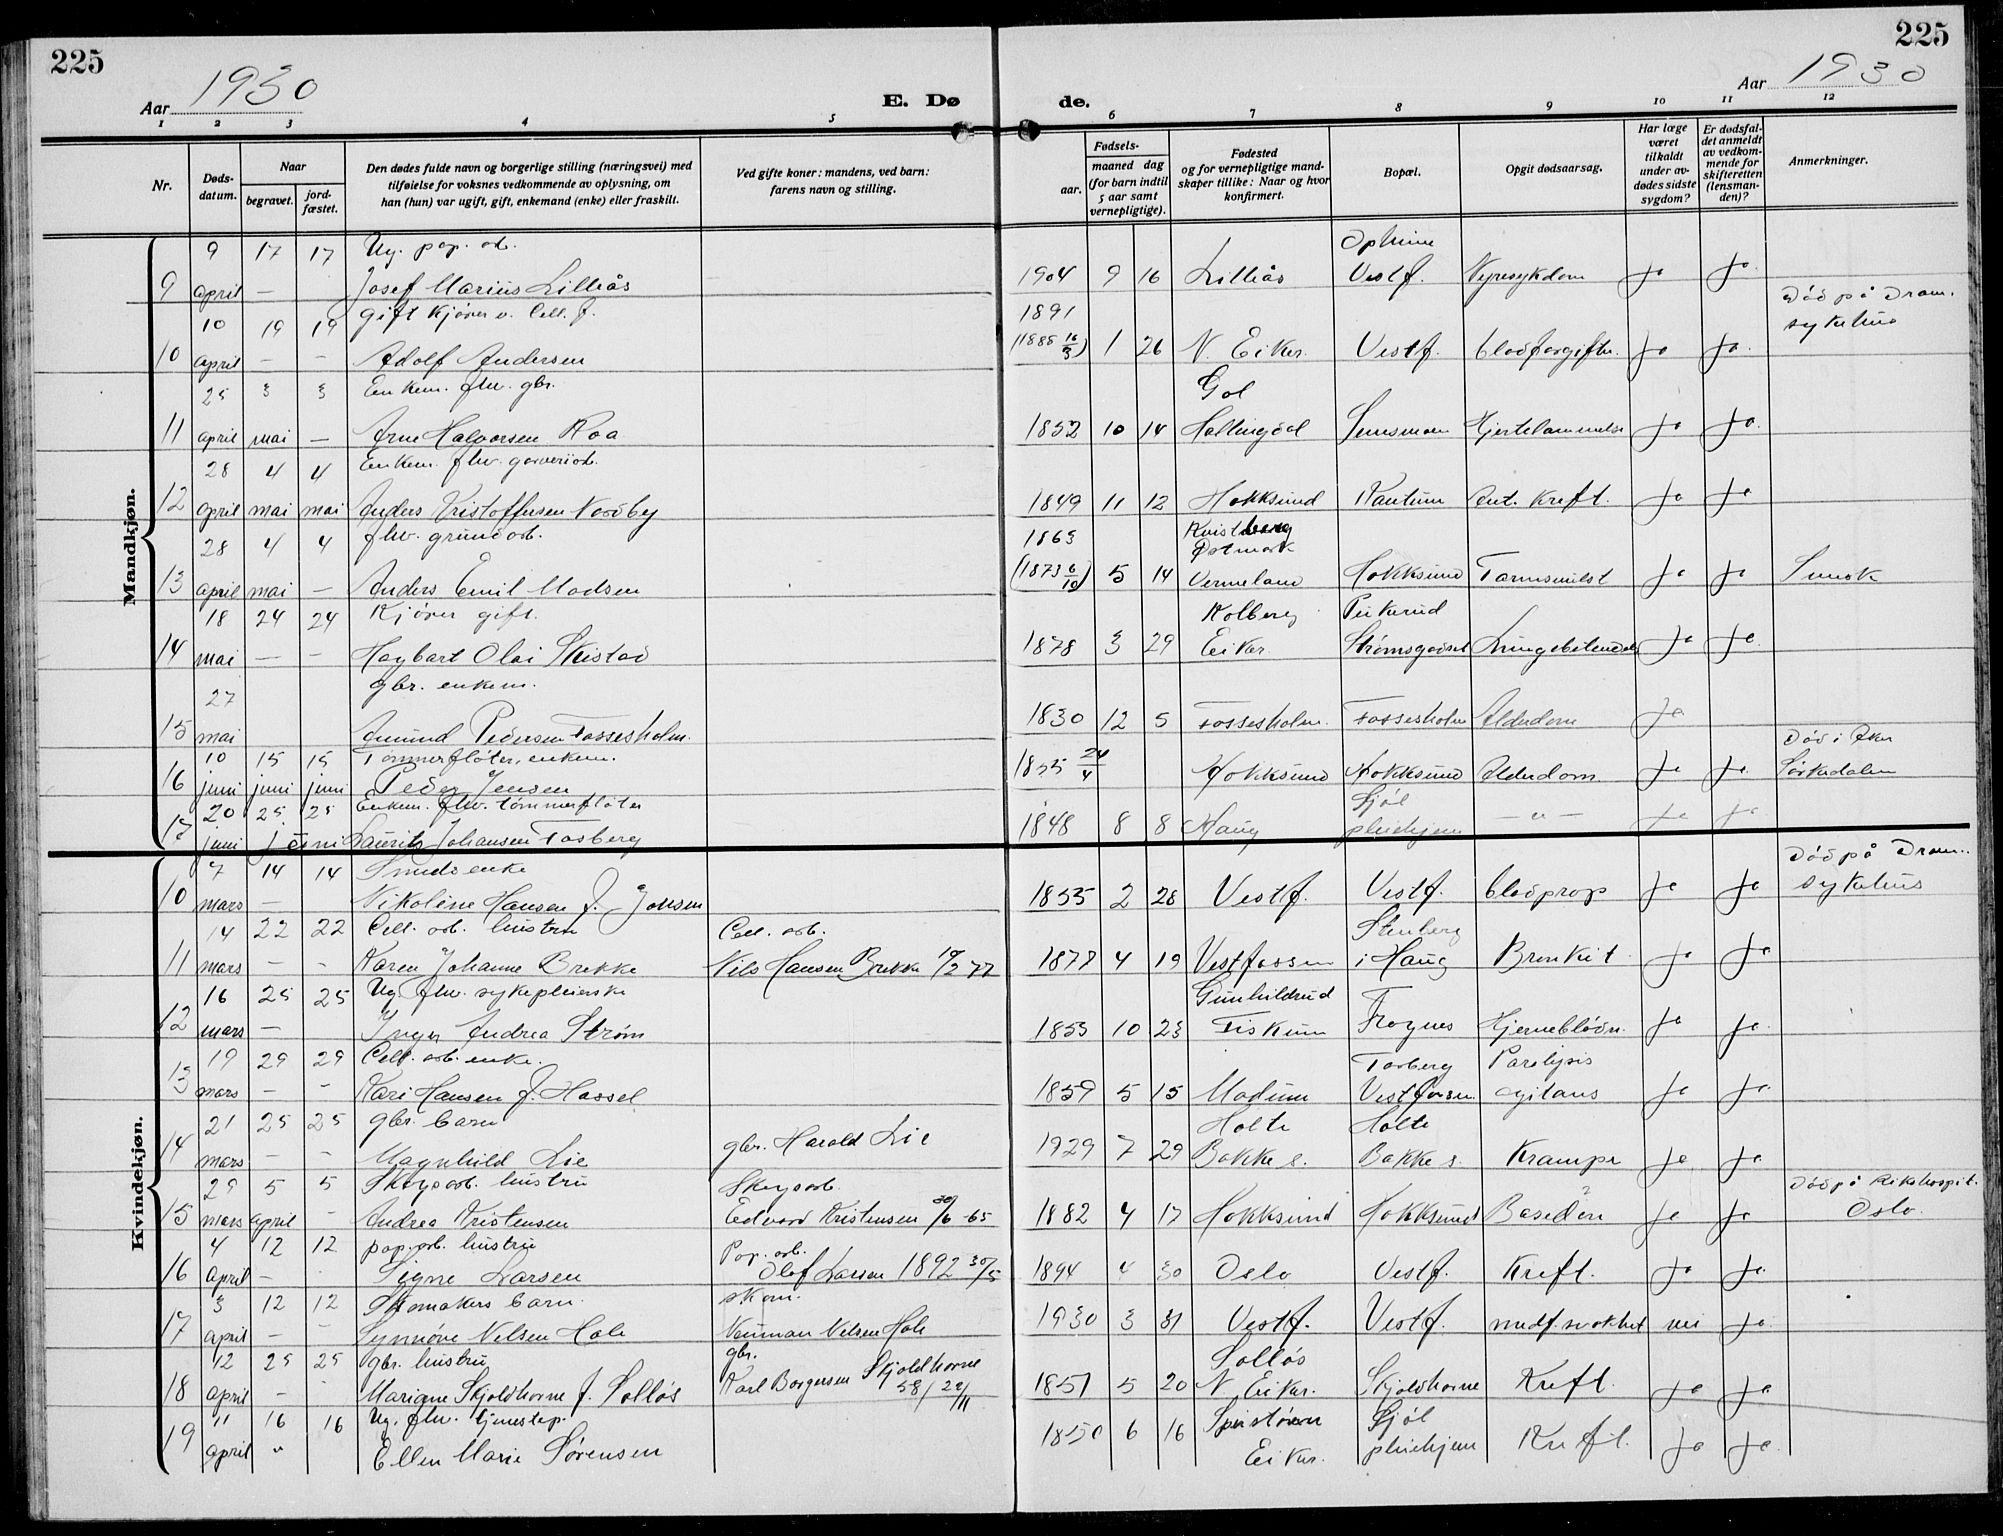 225
225
Aar 1930
E. Dø
de.
Aar 1930
1 2 3 4 5 6 7 8 9 10 11 12
Nr.
Døds-
datum.
Naar
begravet.
jord-
fæstet.
Den dødes fulde navn og borgerlige stilling (næringsvei) med
tilføielse for voksnes vedkommende av oplysning, om
han (hun) var ugift, gift, enkemand (enke) eller fraskilt.
Ved gifte koner: mandens, ved barn:
farens navn og stilling.
Fødsels-
aar.
maaned dag
(for barn indtil
5 aar samt
vernepligtige).
Fødested
og for vernepligtige mand-
skaper tillike: Naar og hvor
konfirmert.
Bopæl.
Opgit dødsaarsag.
Har læge
været
tilkaldt
under av-
dødes sidste
sygdom?
Er dødsfal-
det anmeldt
av vedkom-
mende for
skifteretten
(lensman-
den)?
Anmerkninger.
Mandkjøn.
9 17 17 Ug. pap. arb.
9 april — Josef Marius Lilleås 1904 9 16 Lilleås Vestf. Nyresykdom Ja Ja
10 19 19 gift Kjører v. Cell. f. 1891 Død på Dram.
sykehus
10 april — – Adolf Andersen (1885 16/3) 1 26 N. Eiker Vestf. blodforgiftn. Ja Ja
25 3 3 Enkem. fhv. gbr. Gol
11 april mai — Arne Halvorsen Roa 1852 10 14 Hallingdal Semsmoen Hjertelammelse Ja Ja
28 4 4 Enkem. fhv. garveriarb.
12 april mai mai Anders Kristoffersen Nordby 1849 11 12 Hokksund Rantum Ant. Kreft. Ja Ja
28 4 4 fhv. grundarb. 1863 Kvistberg
Østmark
13 april mai — Anders Emil Madsen (1873 6/10) 5 14 Vermeland Hokksund Tarmsmilst Ja Ja Svensk
18 24 24 Kjører gift. Kolberg
14 mai — – Hagbart Olai Skistad 1878 3 29 Eiker Strømsgodset Lungebetendelse Ja Ja
27 gbr. enkem.
15 mai Amund Pedersen Fossesholm. 1830 12 5 Fossesholm. Fossesholm Alderdom Ja
10 15 15 Tømmerfløter, enkem. Død i Aker
16 juni juni juni Peder Jensen 1855 24/4 Hokksund Hokksund Alderdom Ja Ja Sørkedalen
20 25 25 Enkem. fhv. tømmerfløter
17 juni juni Laurits Johansen Fosberg 1848 8 8 Haug pleiehjem — " — Ja Ja
Kvindekjøn.
7 14 14 Smeds enke Død på Dram.
10 mars — Nikoline Hansen f. Jonsen 1855 2 28 Vestf. Vestf. blodprop Ja Ja sykehus
14 22 22 Cell. arb. hustru Cell. arb. Stenberg
11 mars – – Karen Johanne Brekke Nils Hansen Brekke 1878 4 19 Vestfossen i Haug Bronkit Ja Ja
16 25 25 Ug. fhv. sykepleierske Gunhildrud
12 mars — Inger Andrea Strøm 1853 10 23 Fiskum Frognes Hjerneblødn. Ja Ja
19 29 29 Cell. arb. enke. Paralysis
13 mars – – Kari Hansen f. Hassel 1859 5 15 Modum Vestfossen agitans Ja Ja
21 25 25 gbr. barn Holte Holte
14 mars – – Magnhild Lie gbr. Harald Lie 1929 7 29 Bakke s. Bakke s. Krampe Ja Ja
29 5 5 Skogsarb. hustru Skogsarb. Død på Rikshospit.
15 mars april – Andrea Kristensen Edvard Kristensen 30/6 -65 1882 4 17 Hokksund Hokksund Basedow Ja Ja Oslo.
4 12 12 pap. arb. hustru Pap. arb.
16 april – Signe Larsen Olof Larsen 1892 30/5 1894 4 30 Oslo Vestf. Kreft. Ja Ja
3 12 12 Skomakers barn. skom.
17 april – – Synnøve Nelsen Hole Neuman Nelsen Hole 1930 3 31 Vestf. Vestf. medf. svakhet nei Ja
12 25 25 gbr. hustru gbr. Solløs
18 april – – Mariane Skjoldhorne f. Solløs Karl Borgersen Skjoldhorne 58/ 22/11 1851 5 20 N. Eiker. Skjoldhorne Kreft. Ja Ja
11 16 16 Ug. fhv. tjenestep.
19 april " Ellen Marie Sørensen 1850 6 16 Eiker. pleiehjem Kreft. Ja Ja